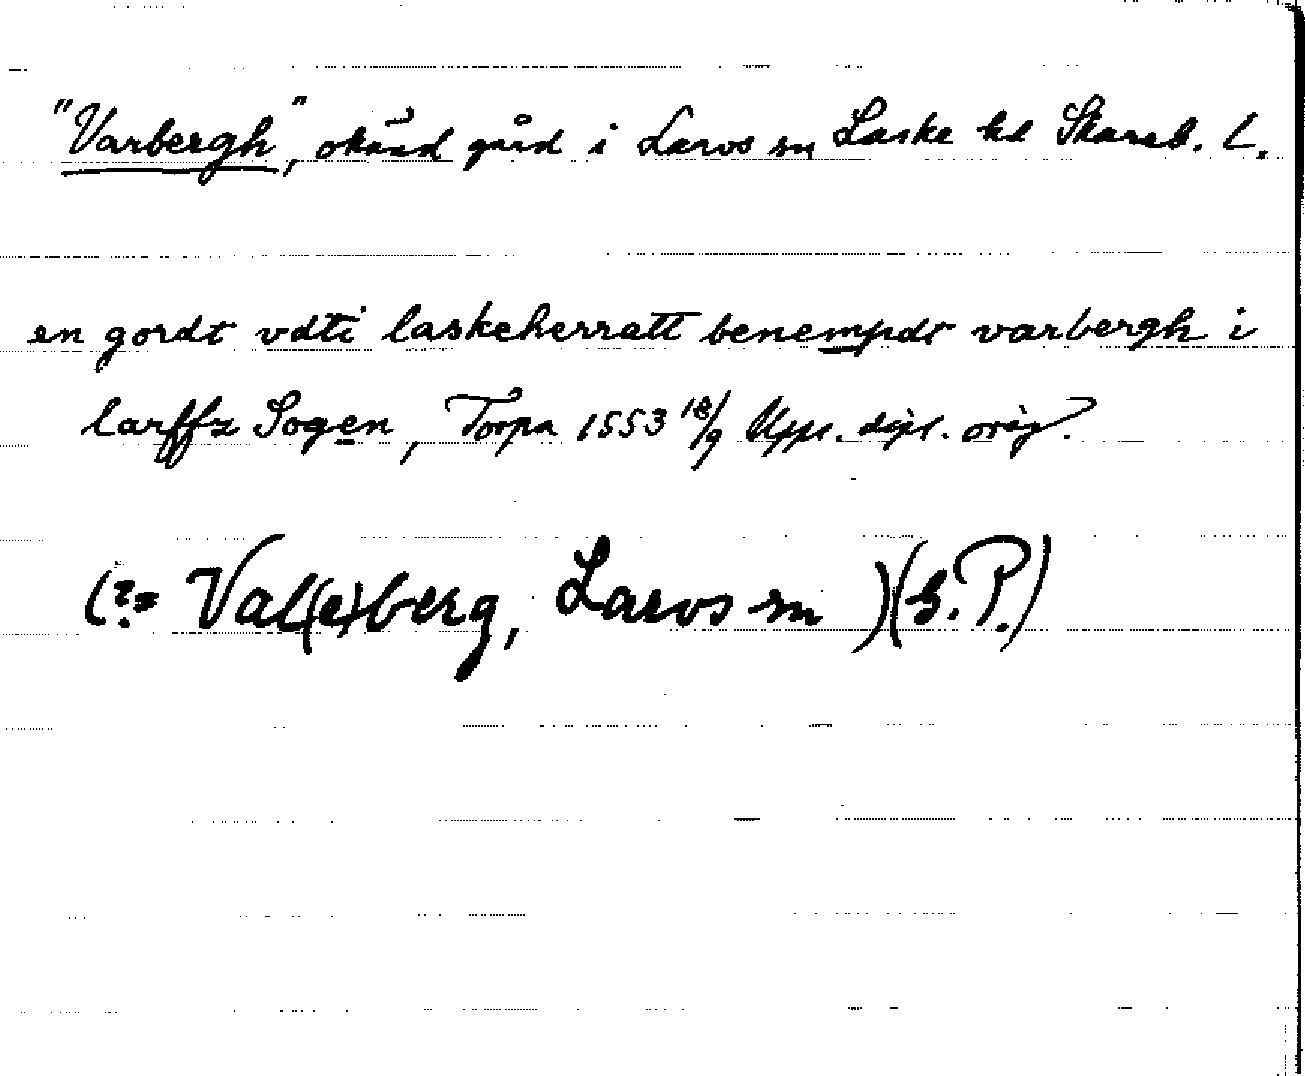 "Varbergh", okänd gård i Larvs sn Laske hd Skarab. L.
en gordt vdti laskeherratt benempdt varbergh i
larffz Sogen, Torpa 1553 18/9 Upps. dipl. orig.
(?= Val(e)berg, Larvs sn )(S.P.)